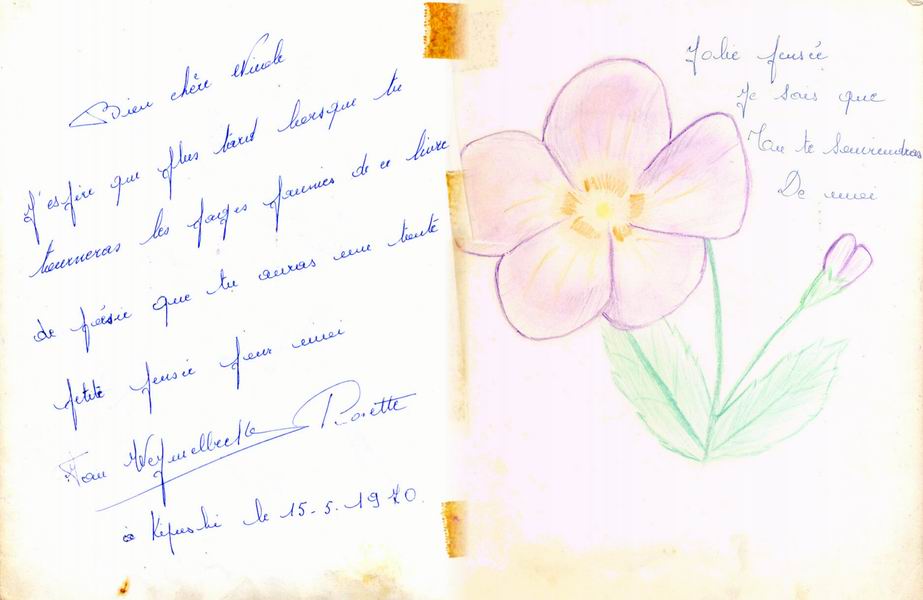 Bien chère Nicole
J'espire que plus tard lorsque tu
tourneras les pages jaunies de ce livre
de poésie que tu auras une toute
petite pensée pour moi
Rosette
à Kipushi le 15-5-1970.
Jolie pensée
Je sais que
Tu te souviendras
De moi